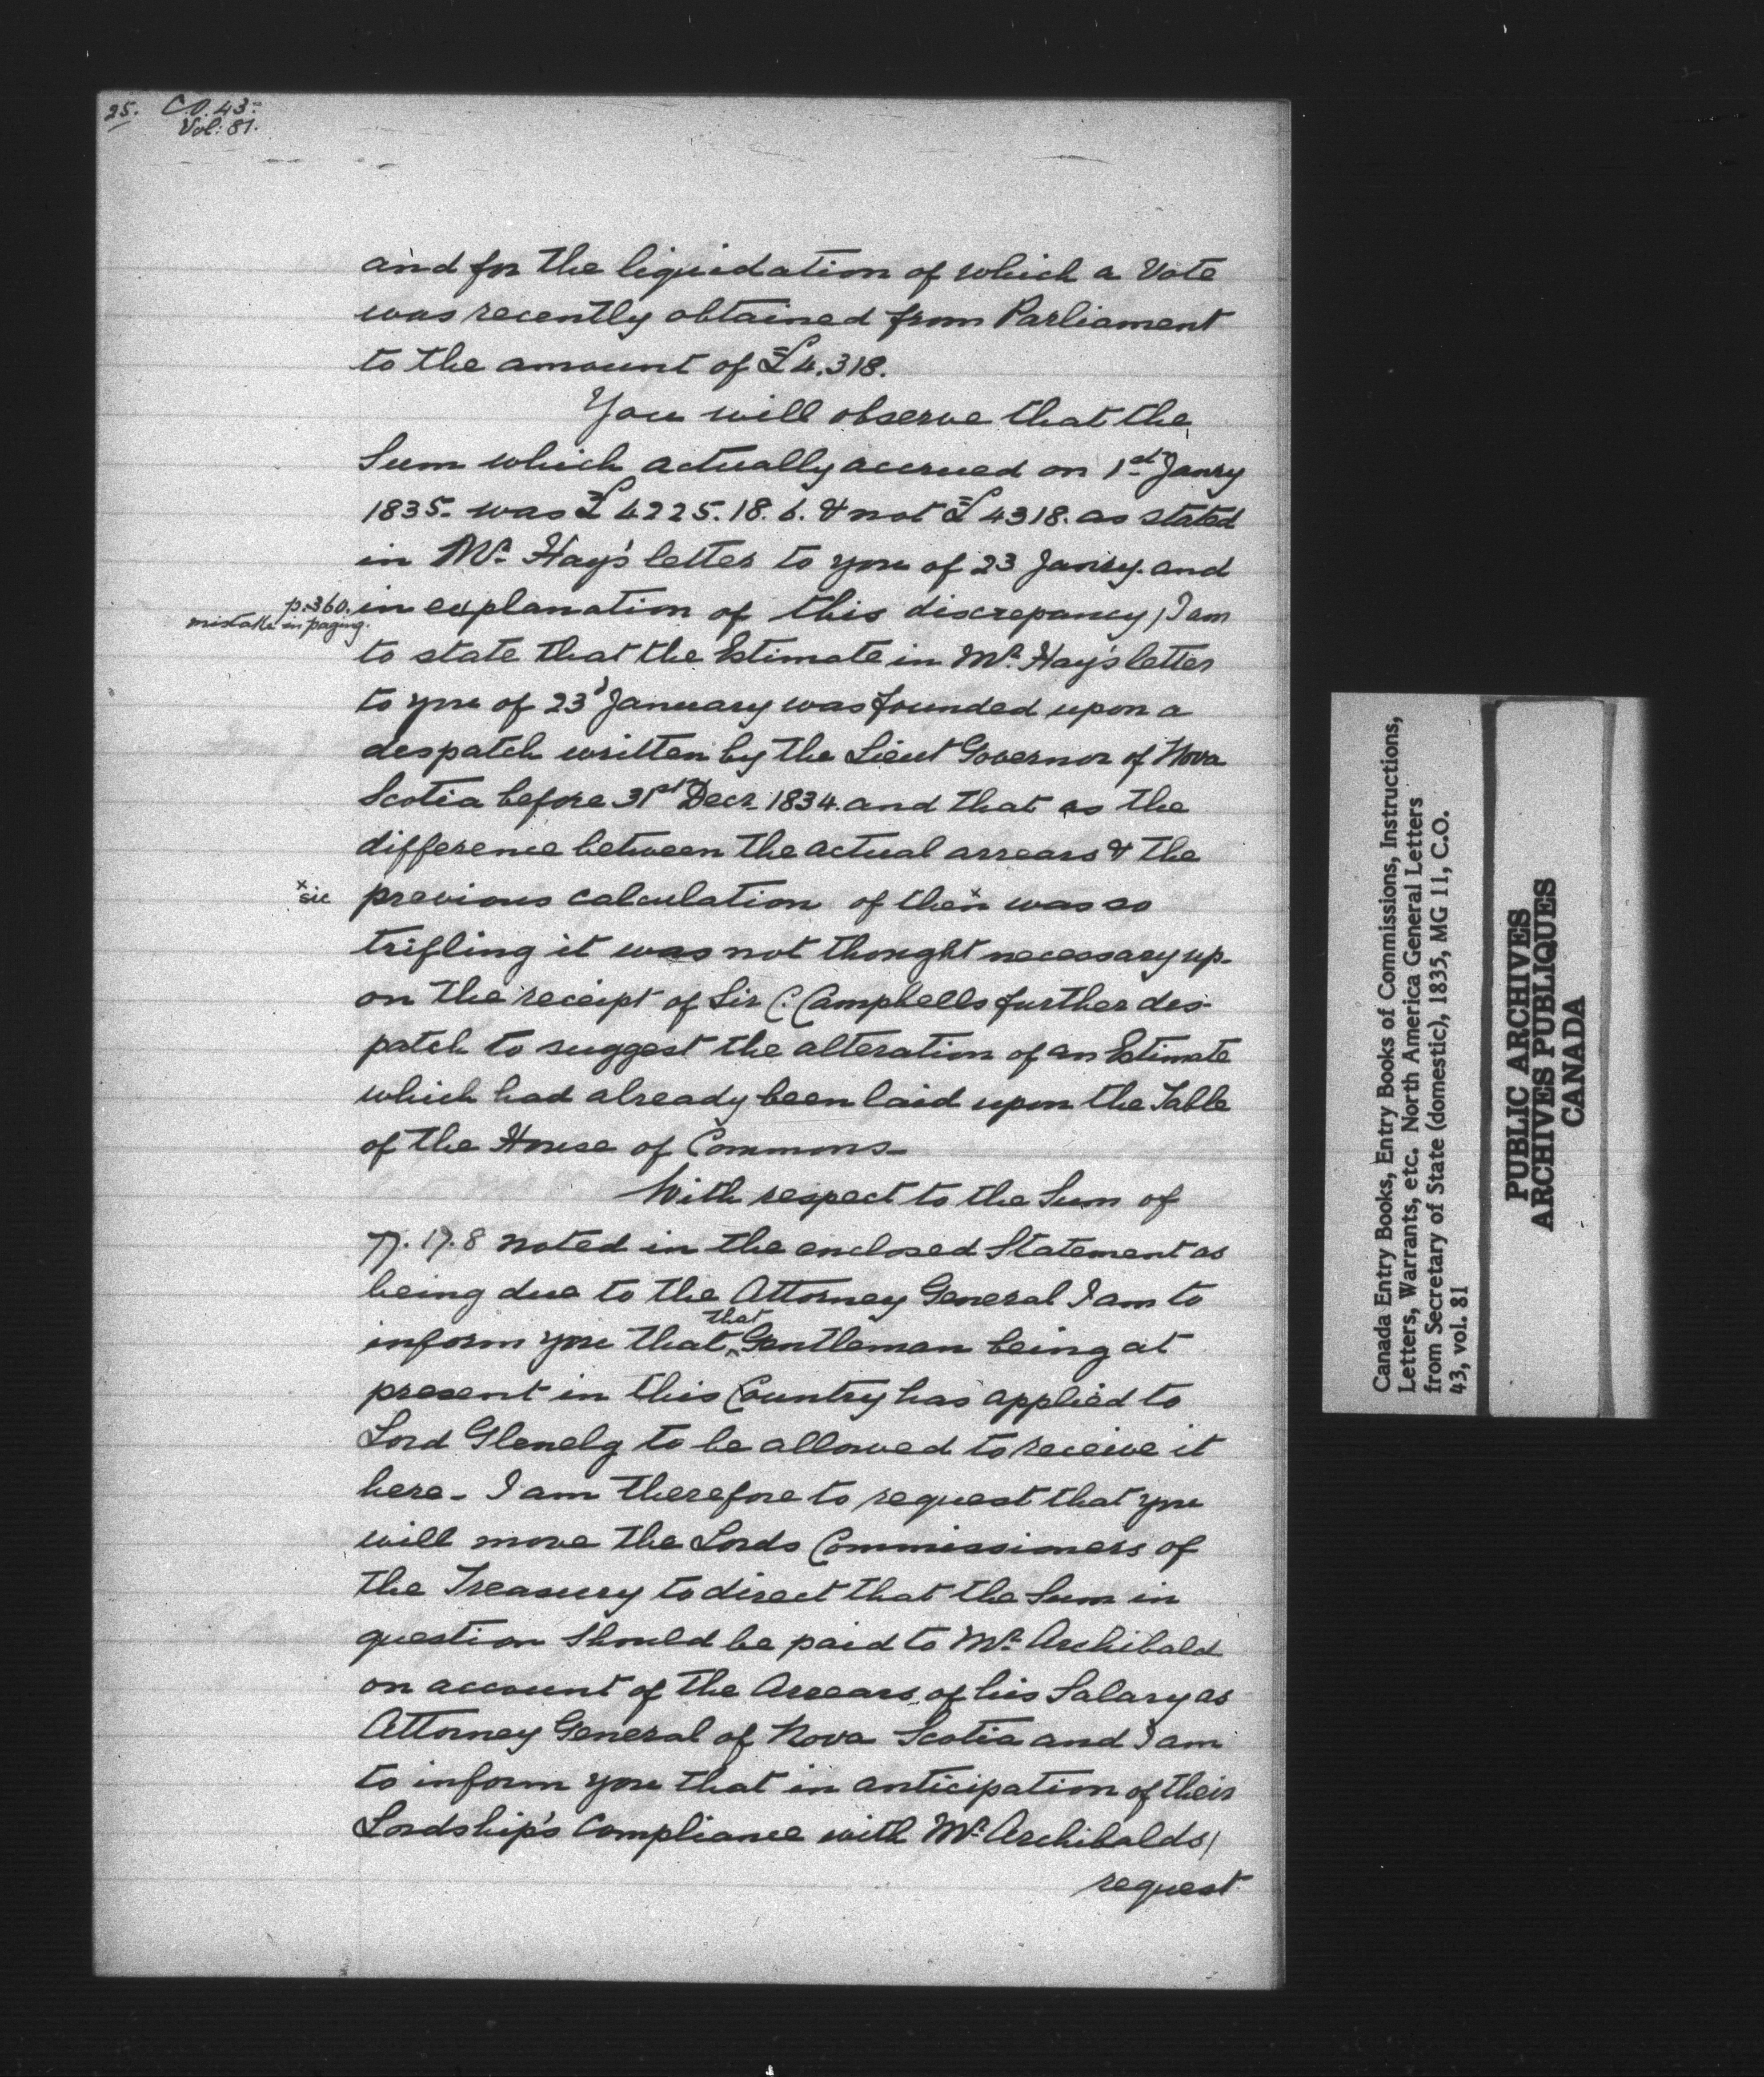 25. C.O. 43:
Vol: 81.
and for the liquidation of which a Vote
was recently obtained from Parliament
to the amount of £4.318.
You will observe that the
Sum which actually accrued on 1st Janry
1835. was £4225.18.6. & not £4318. as stated
in Mr. Hay's letter to you of 23 Janry. and
p. 360. in explanation of this discrepancy / I am
mistake in paging.
to state that the Estimate in Mr. Hay's letter
to you of 23d January was founded upon a
despatch written by the Lieut Governor of Nova
Scotia before 31st Decr 1834. and that as the
difference between the actual arrears & the
x sic previous calculation of then x was so
trifling it was not thought necessary up-
on the receipt of Sir C. Campbells further des-
patch to suggest the alteration of an Estimate
which had already been laid upon the Table
of the House of Commons_
With respect to the Sum of
77.17.8 noted in the enclosed Statement as
being due to the Attorney General I am to
inform you that ^that Gentleman being at
present in this Country has applied to
Lord Glenelg to be allowed to receive it
here_ I am therefore to request that you
will move the Lords Commissioners of
the Treasury to direct that the Sum in
question should be paid to Mr. Archibald
on account of the Arrears of his Salary as
Attorney General of Nova Scotia and I am
to inform you that in anticipation of their
Lordship's Compliance with Mr. Archibalds /
request
Canada Entry Books, Entry Books of Commissions, Instructions,
Letters, Warrants, etc. North America General Letters
from Secretary of State (domestic), 1835, MG 11, C.O.
43, vol. 81
PUBLIC ARCHIVES
ARCHIVES PUBLIQUES
CANADA